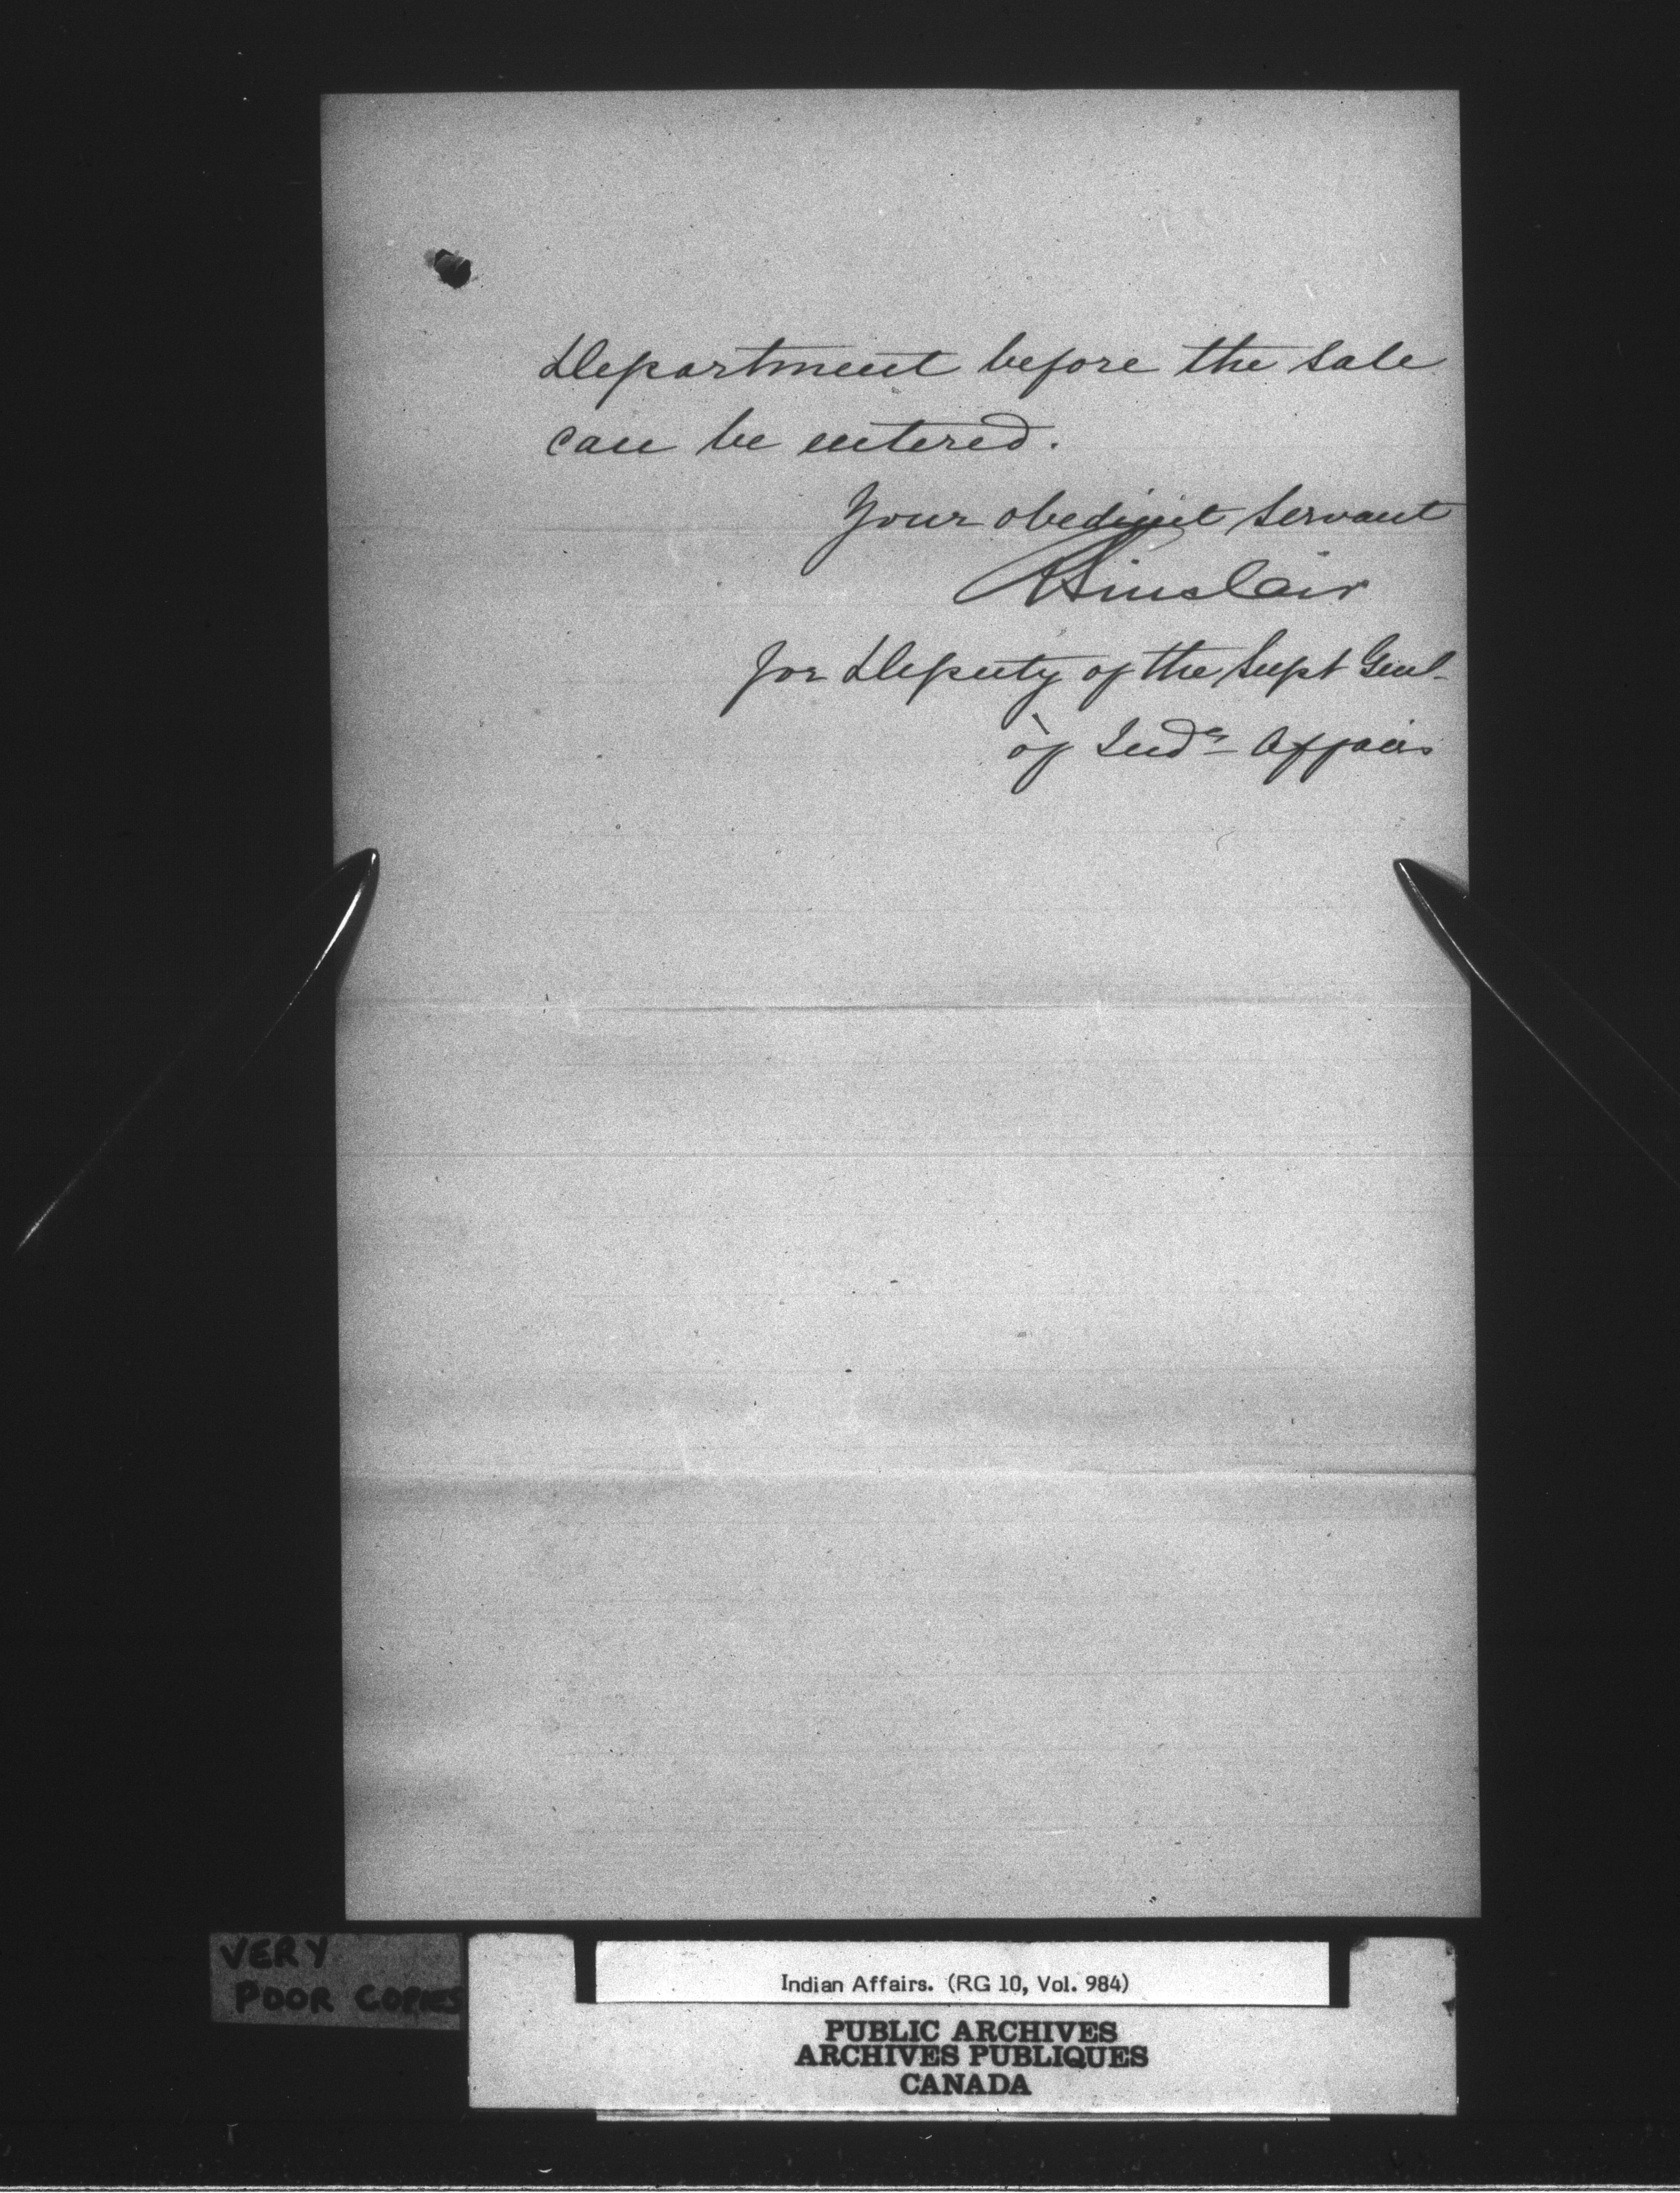 Department before the sale
can be entered.
Your obedient servant
R Sinclair
for Deputy of the Supt Genl.
of Indn Affairs
VERY
POOR COPIES
Indian Affairs. (RG 10, Vol. 984)
PUBLIC ARCHIVES
ARCHIVES PUBLIQUES
CANADA